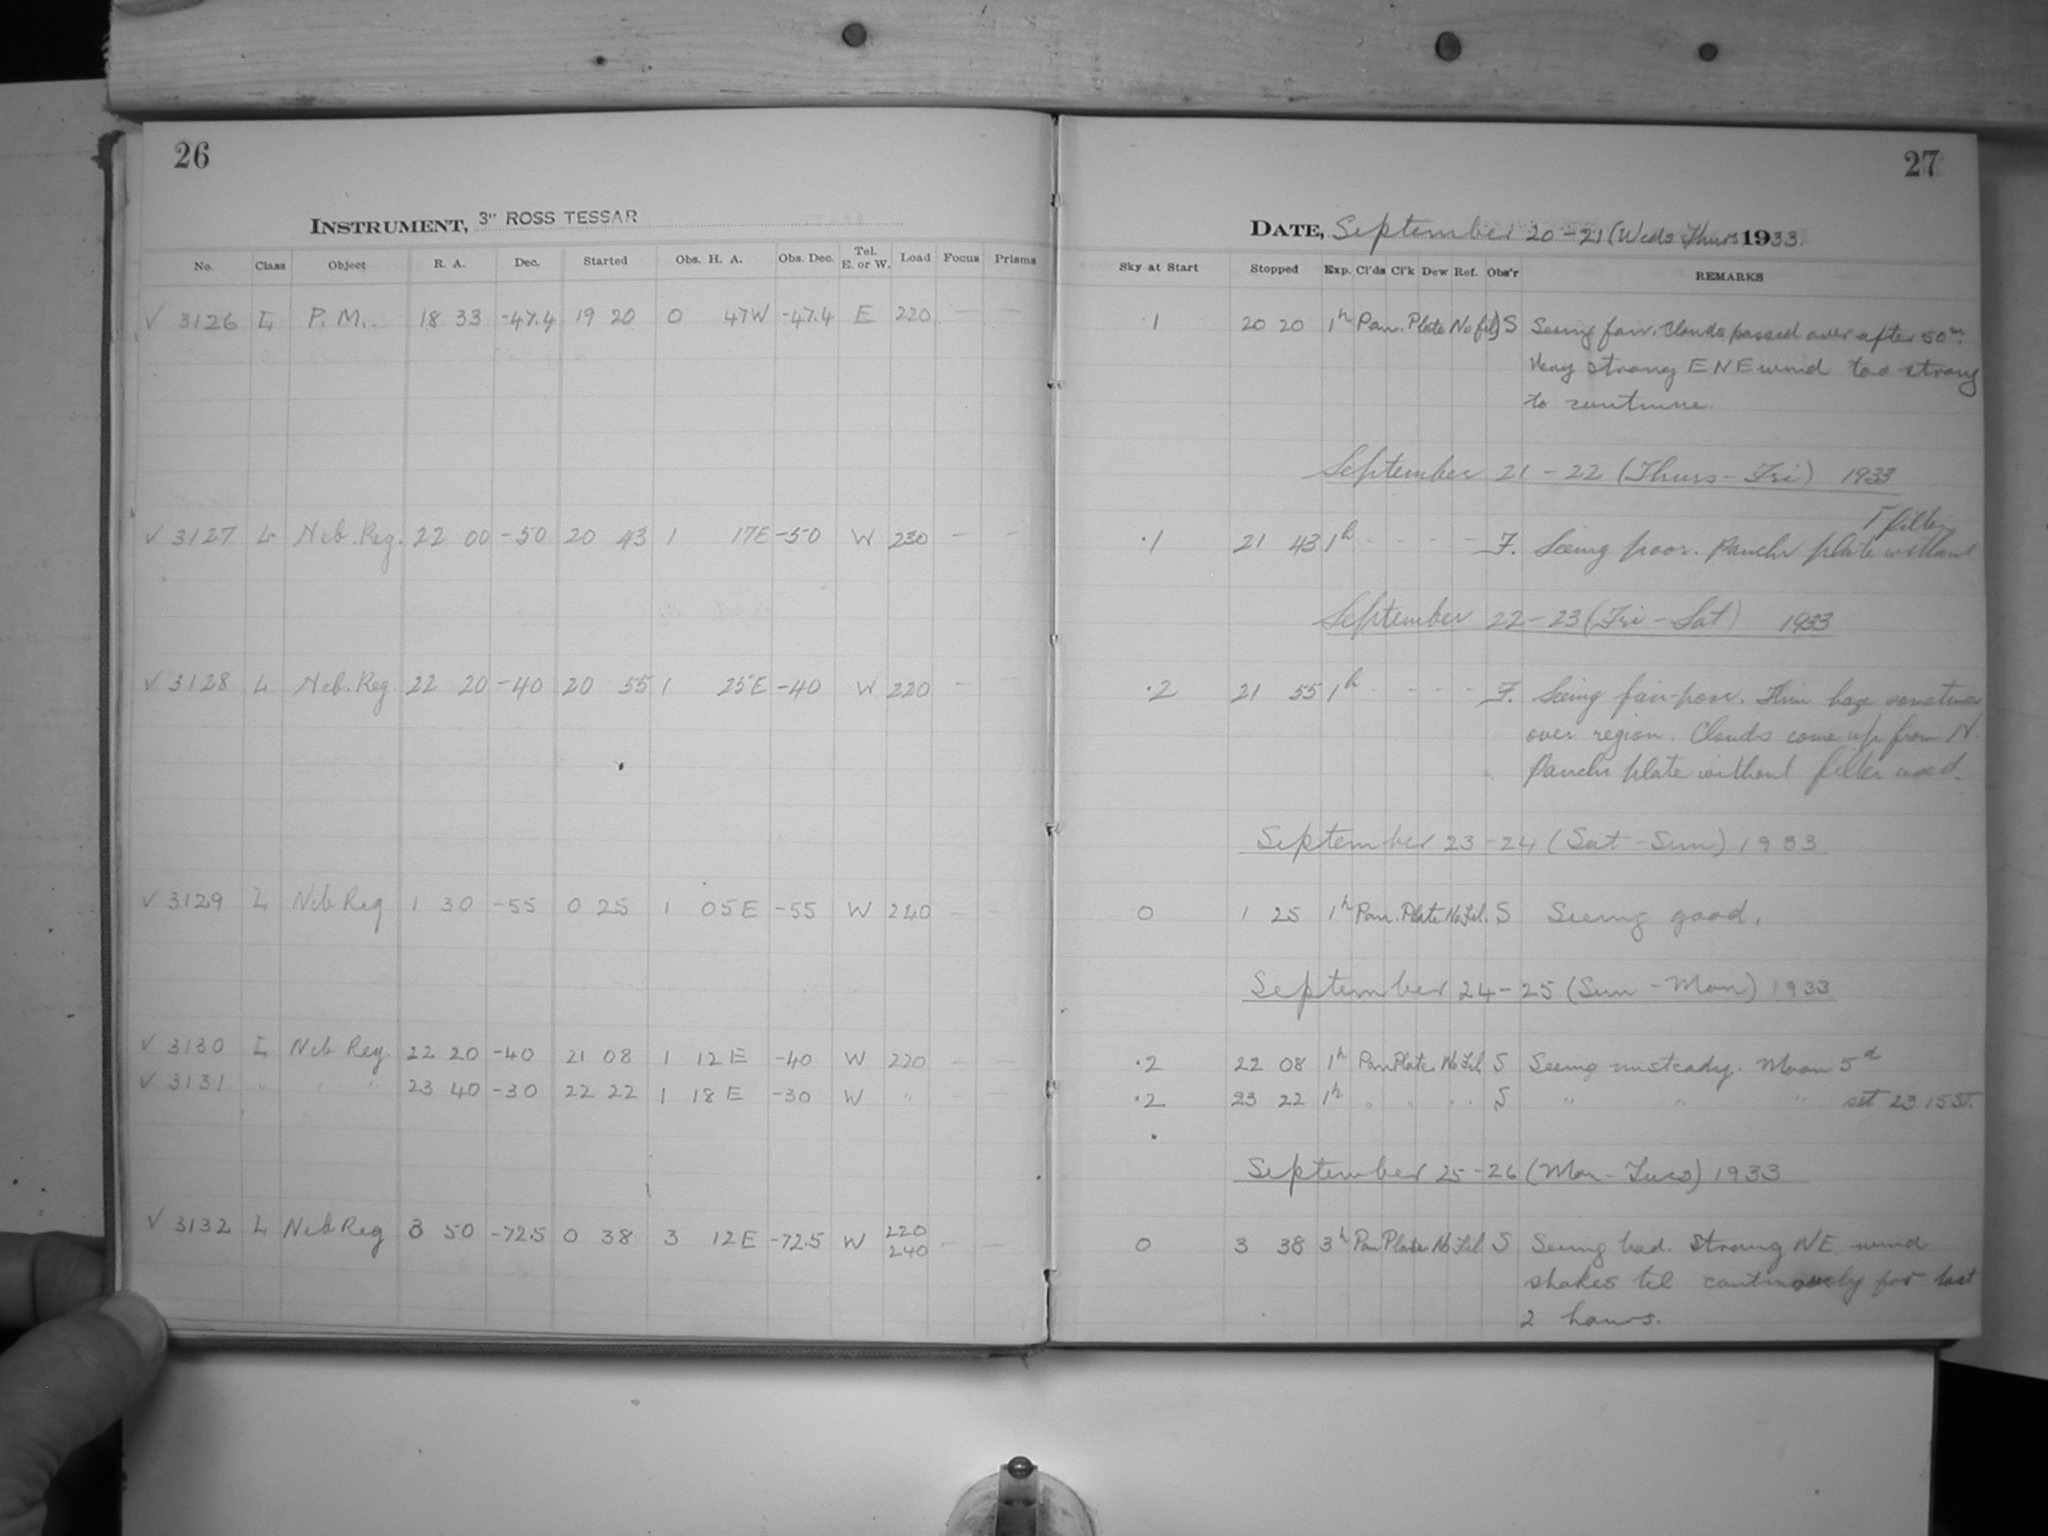 26
INSTRUMENT, 3" ROSS TESSAR
No. Class Object R. A. Dec. Started Obs. H. A. Obs. Dec. Tel. E. or W. Load Focus Prisms
√ 3126 L P. M. 18 33 -47.4 19 20 0 47W -47.4 E 220 — —
√ 3127 L Neb. Reg. 22 00 -50 20 43 1 17E -50 W 230 — —
√ 3128 L Neb. Reg. 22 20 -40 20 55 1 25E -40 W 220 — —
√ 3129 L Neb Reg 1 30 -55 0 25 1 05E -55 W 240 — —
√ 3130 L Neb Reg. 22 20 -40 21 08 1 12E -40 W 220 — —
√ 3131 " " " 23 40 -30 22 22 1 18E -30 W " — —
√ 3132 L Neb Reg 3 50 -72.5 0 38 3 12E -72.5 W 220 240 — —
27
DATE, September 20-21 (Weds Thurs 1933.
Sky at Start Stopped Exp. Cl'ds Cl'k Dew Ref. Obs'r REMARKS
.1 20 20 1h Pan. Plate No fil) S Seeing fair. Clouds passed over after 50m.
Very strong ENE wind too strong
to continue.
September 21-22 (Thurs-Fri) 1933
filter
.1 21 43 1h - - - - F. Seeing poor. Panchr plate without
September 22-23 (Fri-Sat) 1933
.2 21 55 1h - - - - F. Seeing fair-poor. Thin haze sometimes
over region. Clouds come up from N.
Panchr plate without filter used.
September 23-24 (Sat-Sun) 1933
0 1 25 1h Pan. Plate No Fil. S Seeing good.
September 24-25 (Sun-Mon) 1933
.2 22 08 1h Pan Plate No Fil. S Seeing unsteady. Moon 5d
.2 23 22 1h " " " " S " " " set 23 15 ST.
September 25-26 (Mon-Tues) 1933
0 3 38 3h Pan Plate No Fil S Seeing bad. Strong NE wind
shakes tel continuously for last
2 hours.